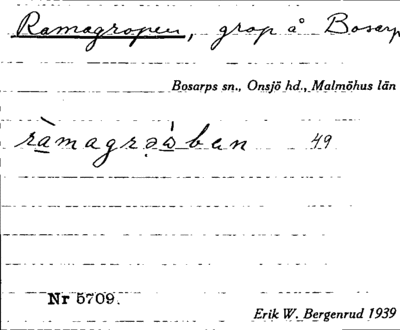 Ramagropen, grop å Bosarp
Bosarps sn., Onsjö hd., Malmöhus län
ràmagrǝ̣ὰben 49
Nr 5709.
Erik W. Bergenrud 1939